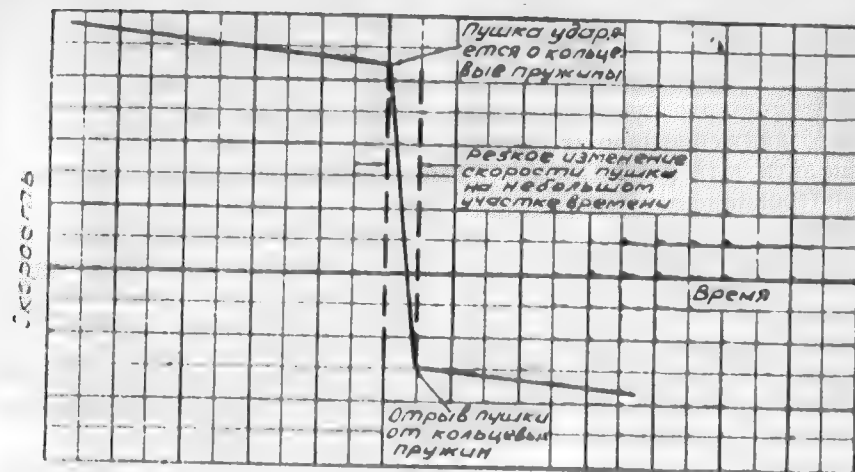 Пушка ударя-
ется о кольце-
вые пружины
резкое изменение
скорости пушки
на небольшом
участке времени
Скорость
Время
Отрыв пушки
от кольцевых
пружин